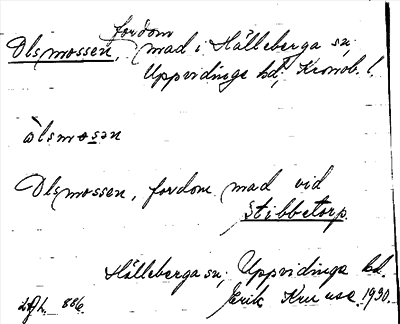 fordom
Olsmossen, mad i Hälleberga sn,
Uppvidinge hd, Kronob. l.
òlsmosən
Olsmossen, fordom mad vid
Stibbetorp.
Hälleberga sn, Uppvidinge hd.
886 Erik Kruuse 1930.